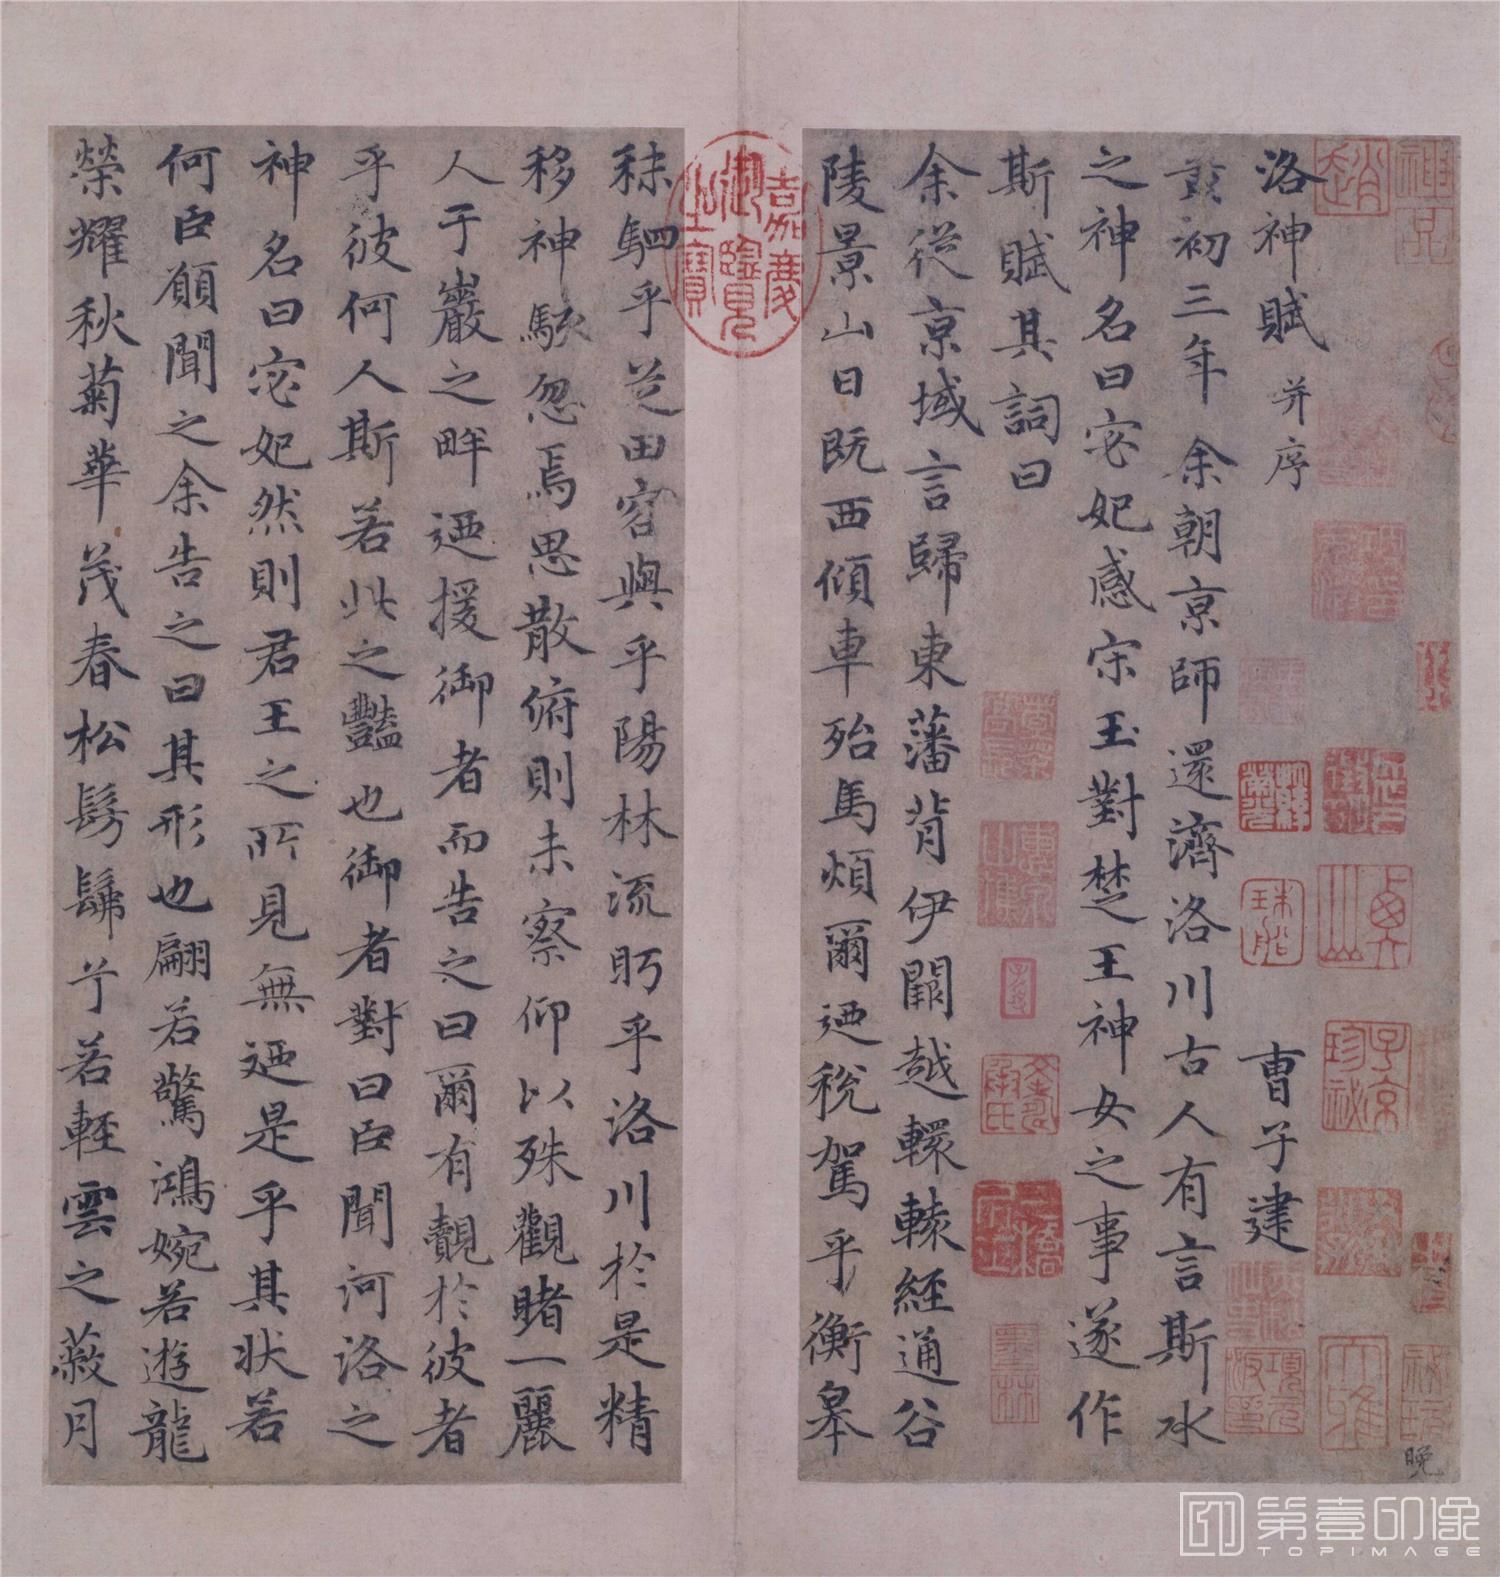 洛神賦 并序 曹子建
黃初三年余朝京師還濟洛川古人有言斯水
之神名曰宓妃感宋玉對楚王神女之事遂作
斯賦其詞曰
余從京域言歸東藩背伊闕越轘轅經通谷
陵景山日既西傾車殆馬煩爾迺稅駕乎蘅皋
秣駟乎芝田容與乎陽林流眄乎洛川於是精
移神駭忽焉思散俯則未察仰以殊觀睹一麗
人于巖之畔迺援御者而告之曰爾有覿於彼者
乎彼何人斯若此之豔也御者對曰臣聞河洛之
神名曰宓妃然則君王之所見無迺是乎其狀若
何臣願聞之余告之曰其形也翩若驚鴻婉若遊龍
榮耀秋菊華茂春松髣髴兮若輕雲之蔽月
嘉慶御覽之寶
晚
第壹印像
TOPIMAGE